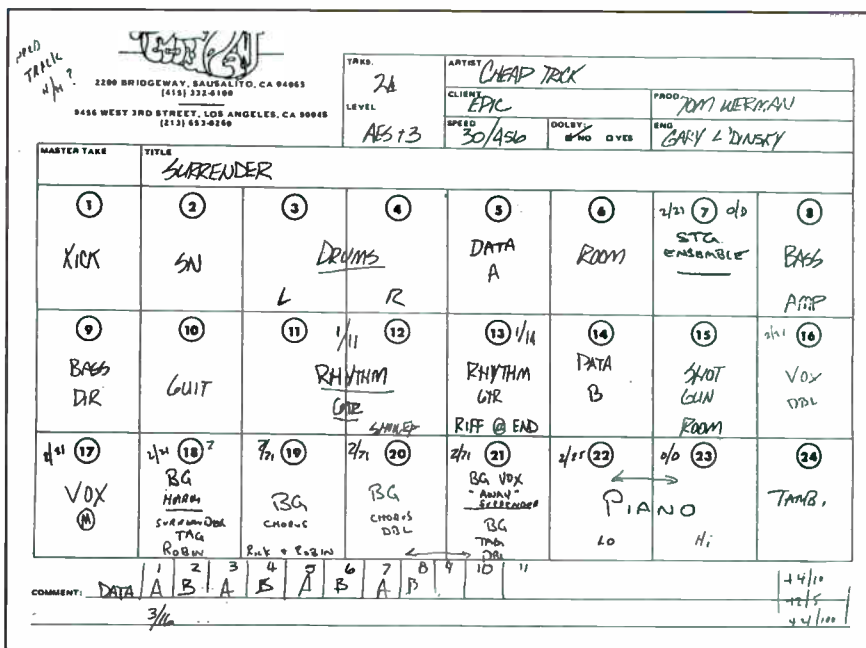 NEED
TRACK
2200 BRIDGEWAY, SAUSALITO, CA 94965
(415) 332-6100
8456 WEST 3RD STREET, LOS ANGELES, CA 90048
(213) 653-0240
TRKS.
24
LEVEL
AES +3
ARTIST CHEAP TRICK
CLIENT EPIC
PROD TOM WERMAN
SPEED 30/456
DOLBY: NO YES
ENG GARY L'DINSKY
MASTER TAKE
TITLE
SURRENDER
1
KICK
2
SN
3 4
DRUMS
L R
5
DATA
A
6
ROOM
2/27 7 O/D
STG.
ENSEMBLE
8
BASS
AMP
9
BASS
DIR
10
GUIT
11 1/11 12
RHYTHM
GTR
13 1/14
RHYTHM
GTR
RIFF @ END
14
DATA
B
15
SHOT
GUN
ROOM
2/21 16
VOX
DBL
2/21 17
VOX
M
2/21 18 ?
BG
HARM
SURRENDER
TAG
ROBIN
2/21 19
BG
CHORUS
RICK + ROBIN
2/21 20
BG
CHORUS
DBL
2/21 21
BG VOX
"AWAY"
SURRENDER
BG
TAG
DBL
2/25 22 O/D 23
PIANO
LO Hi
24
TAMB.
1 2 3 4 5 6 7 8 9 10 11
COMMENT: DATA A B A B A B A B
3/16
+4/10
+2/5